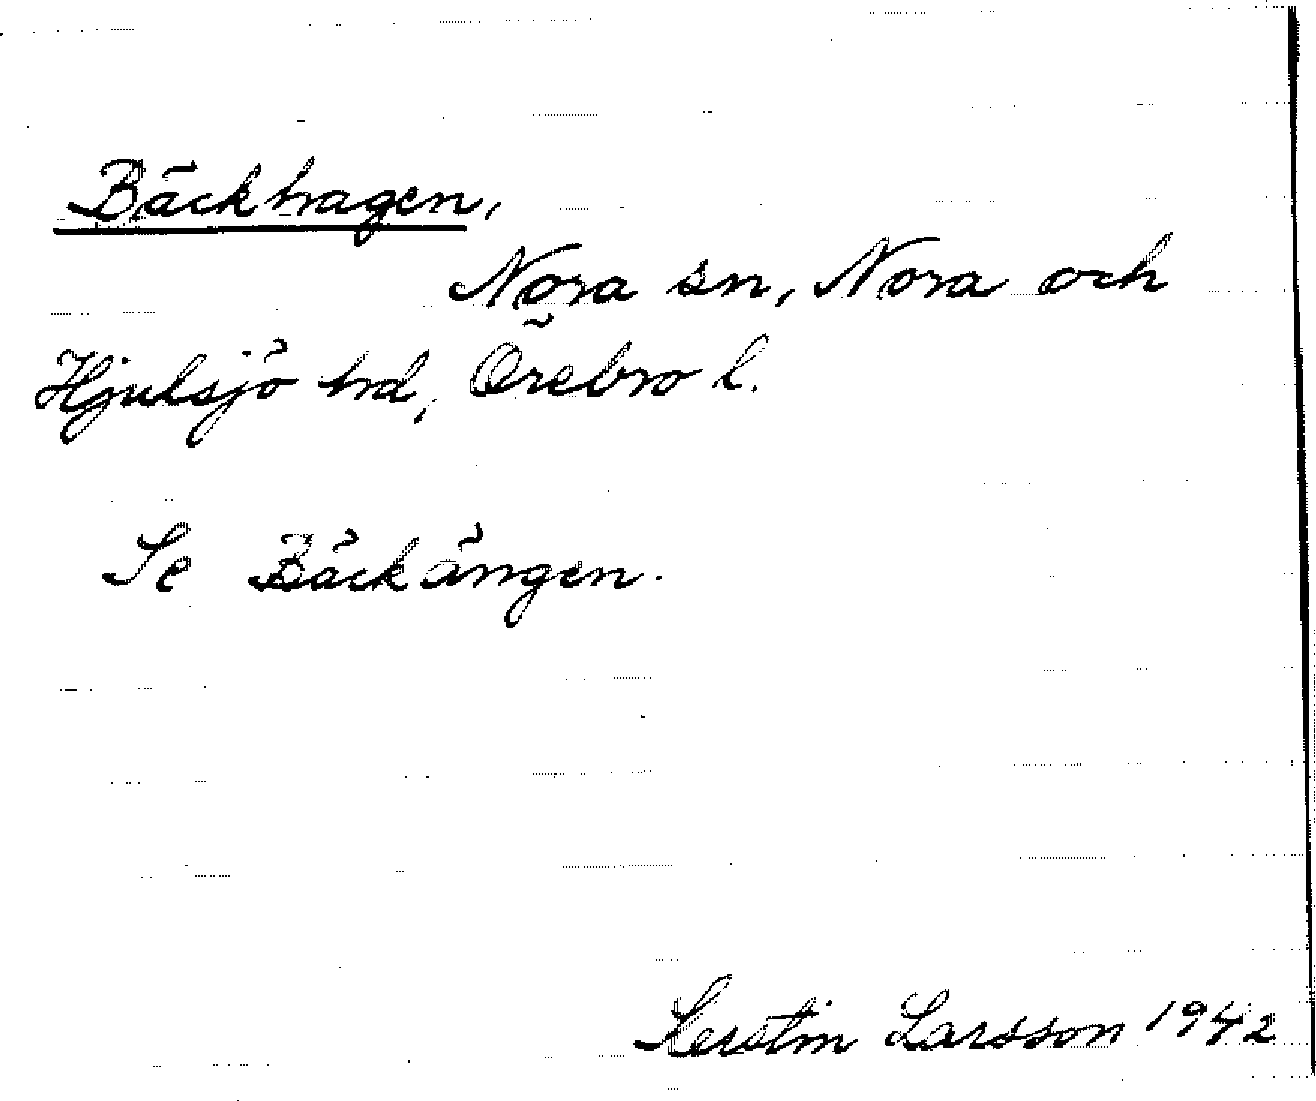 Bäckhagen,
Nora sn, Nora och
Hjulsjö hd, Örebro l.
Se Bäckängen.
Kerstin Larsson 1942